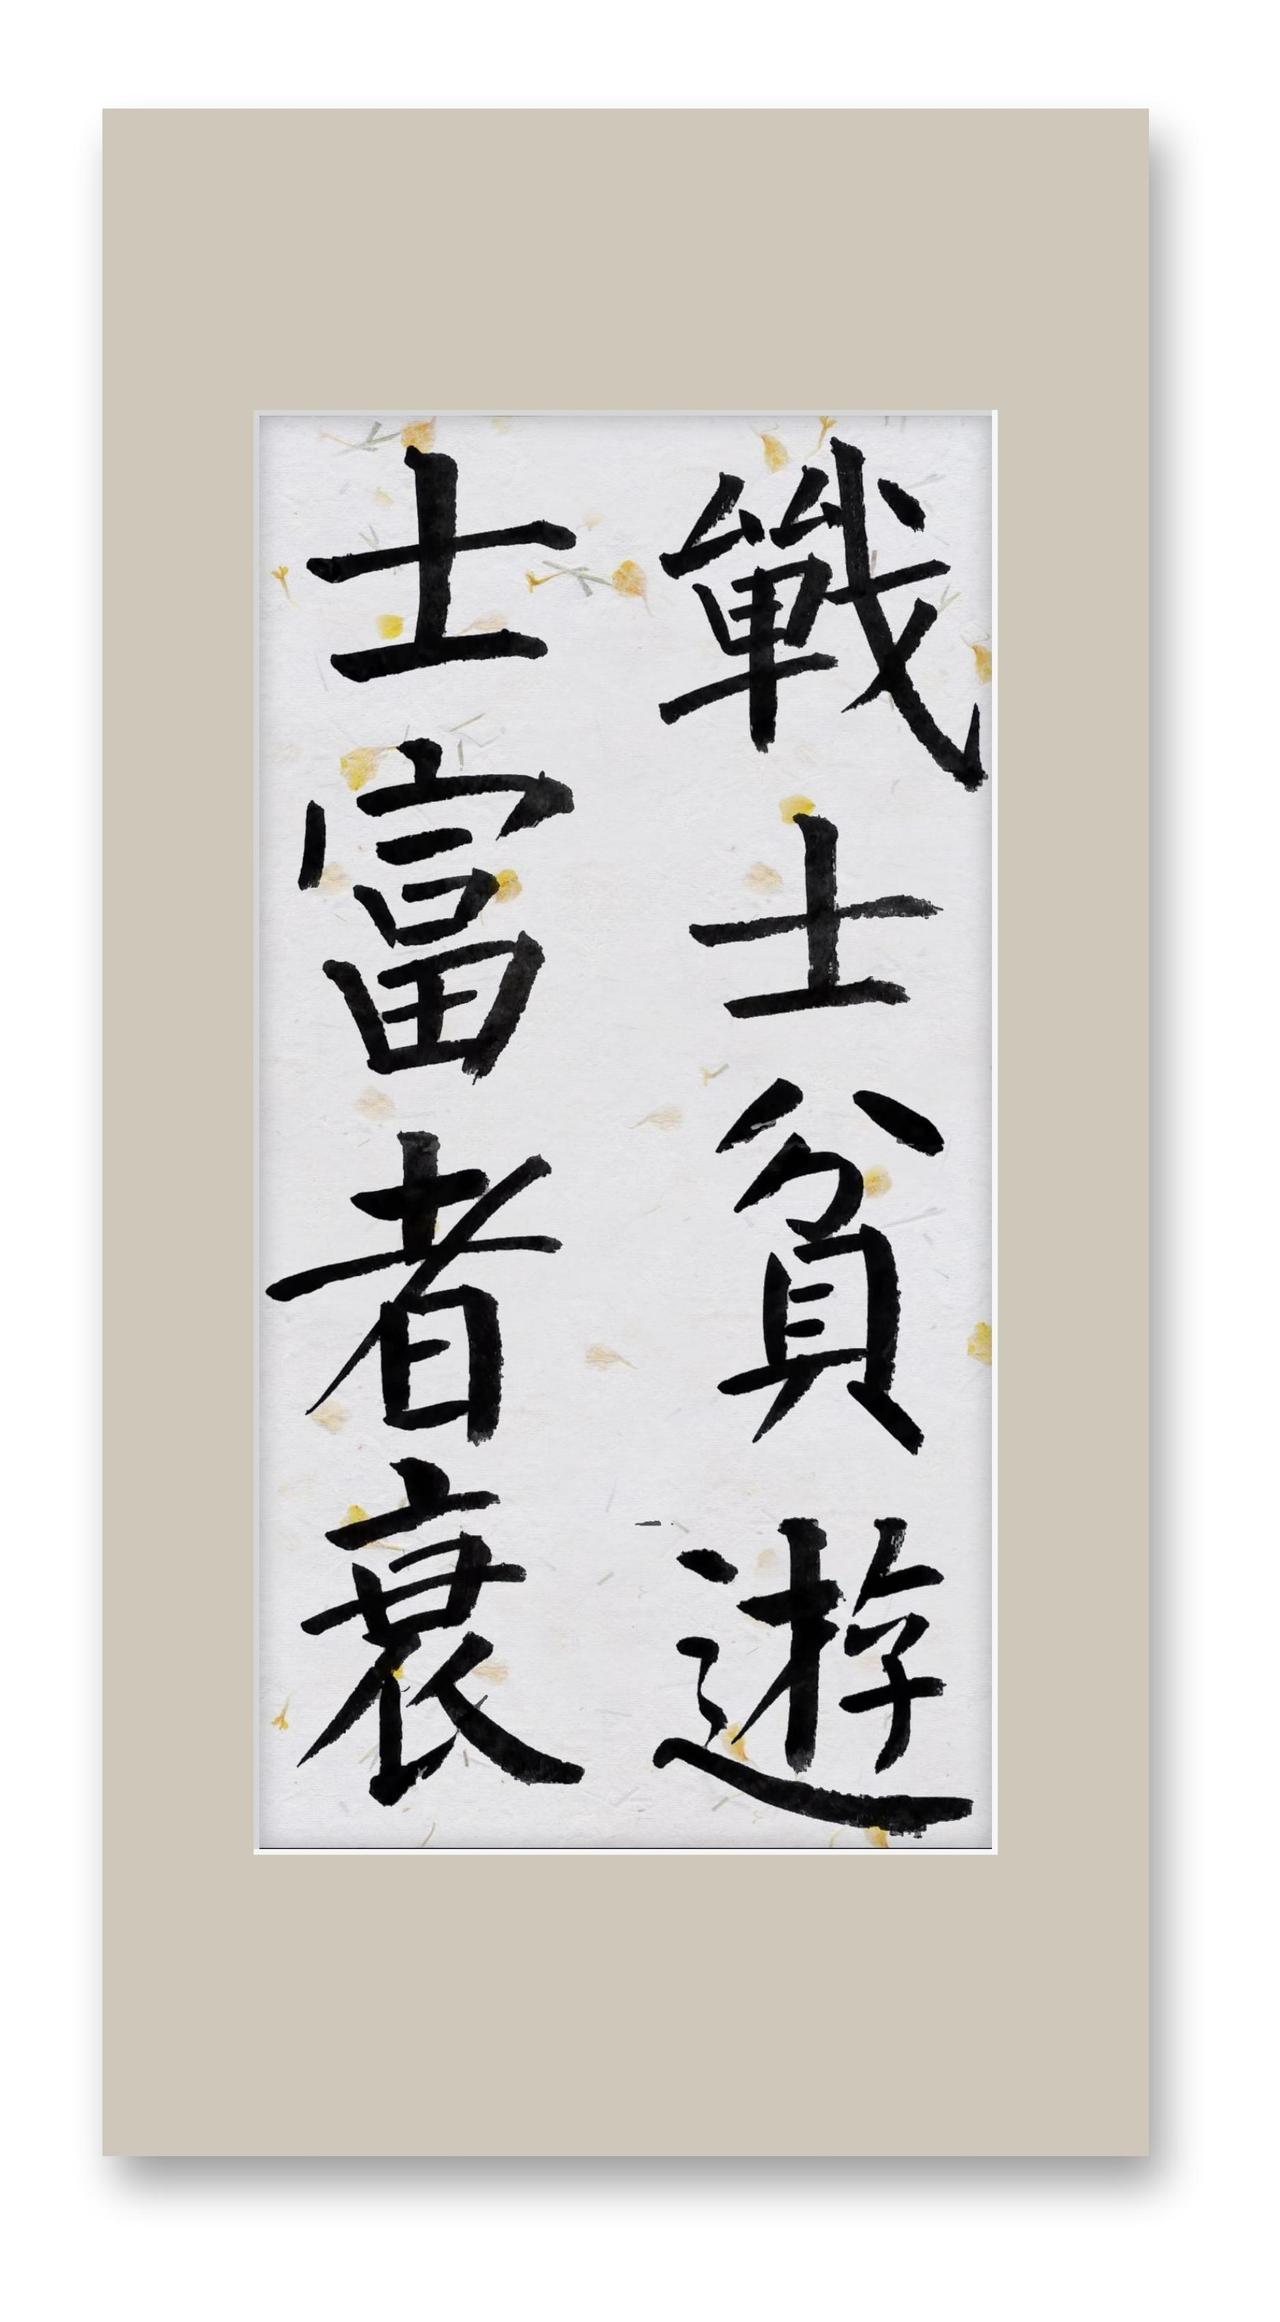 戰士貧遊
士富者衰